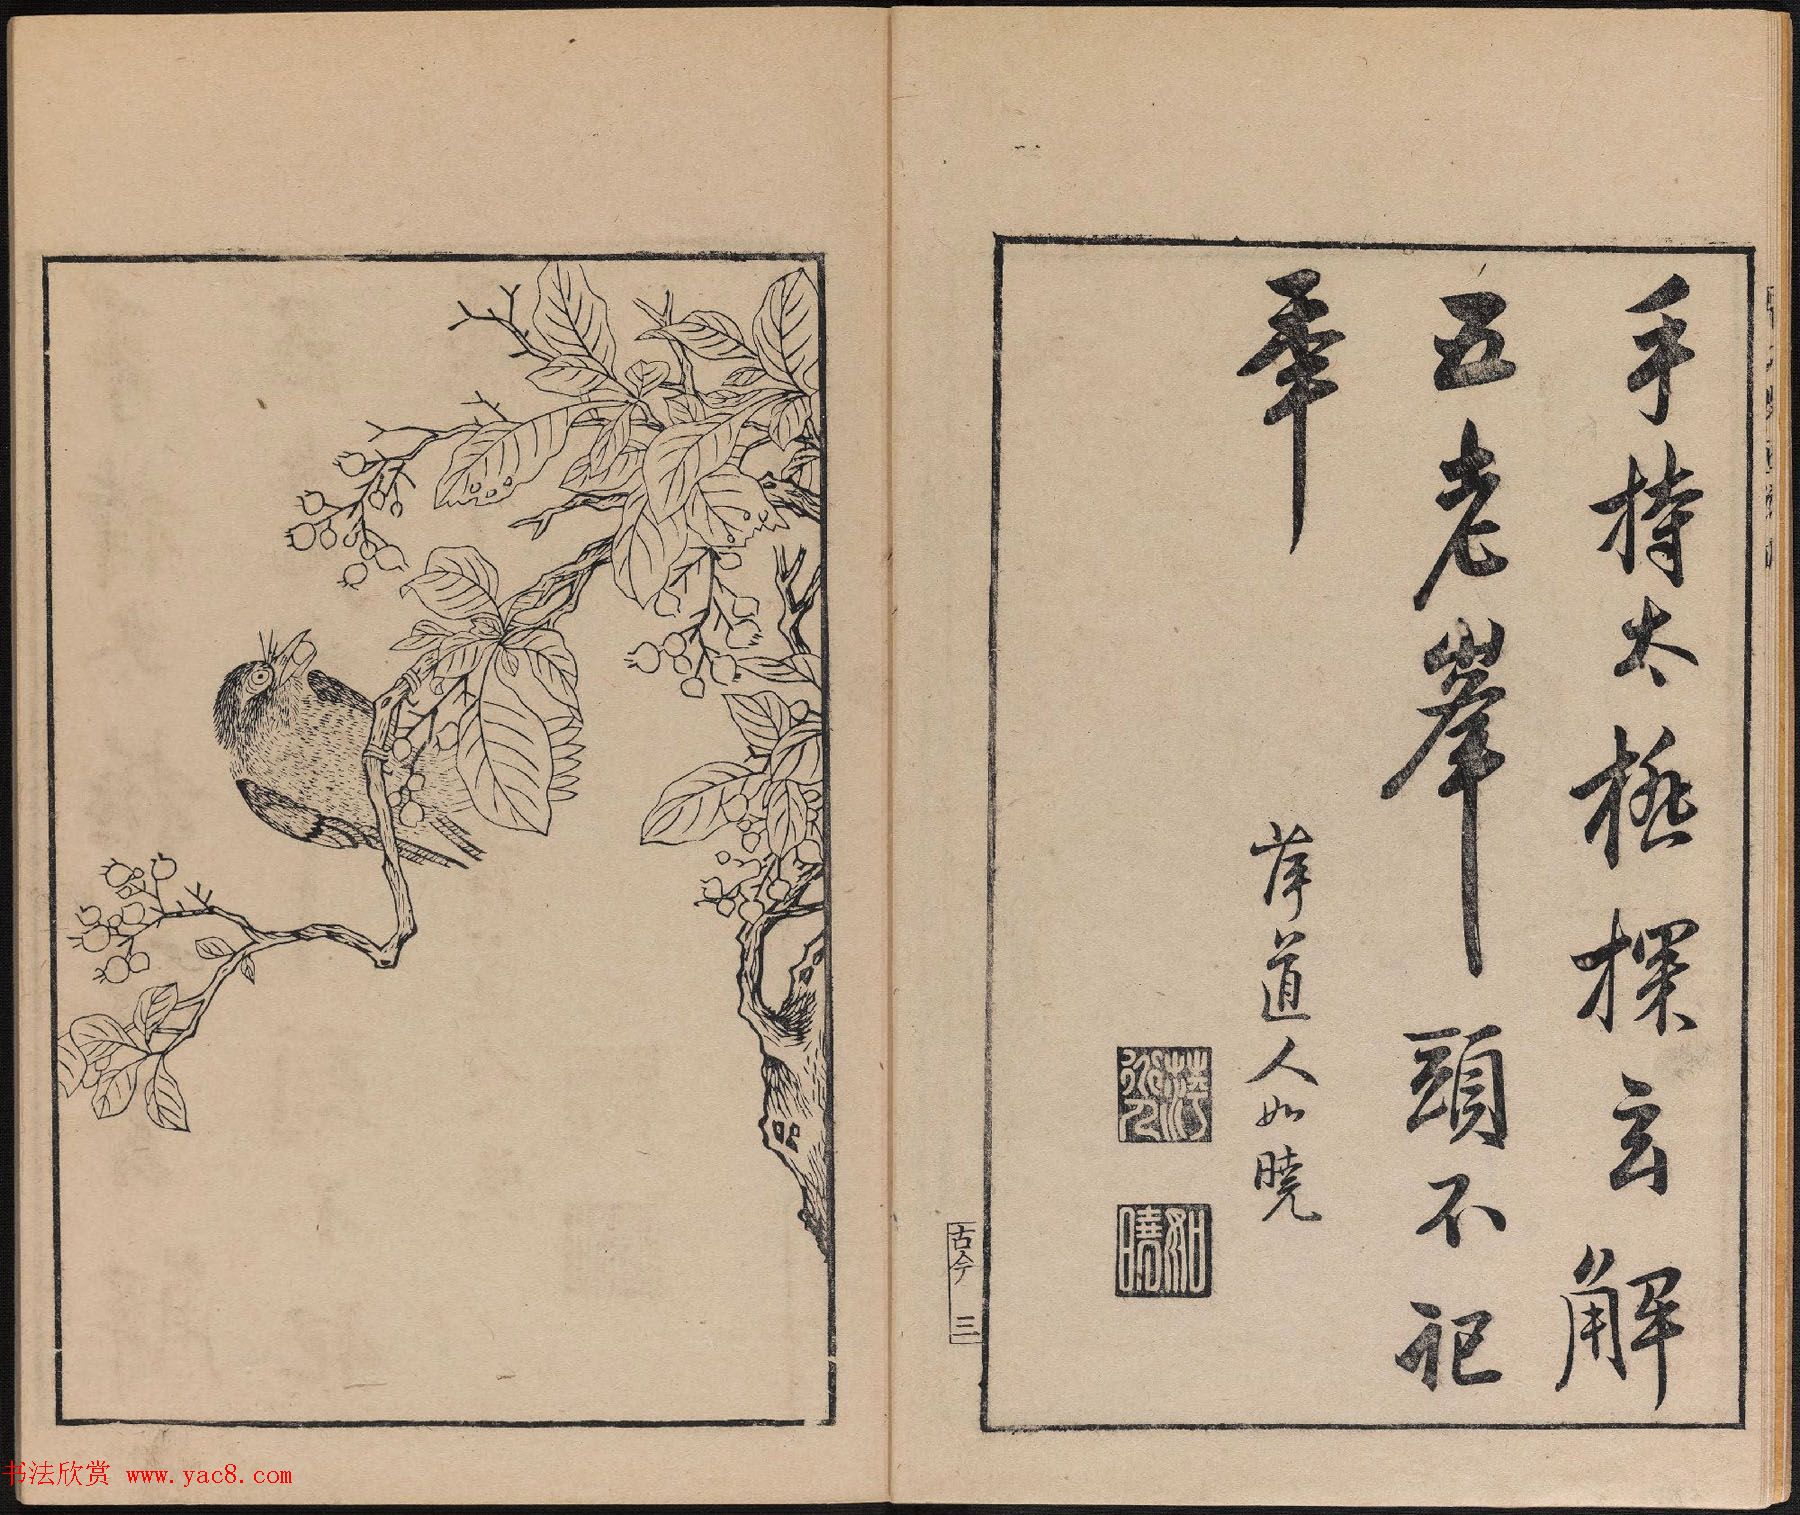 手持太極探玄解
五老峯頭不記
年
薜道人如曉
如曉
古今 三
书法欣赏 www.yac8.com